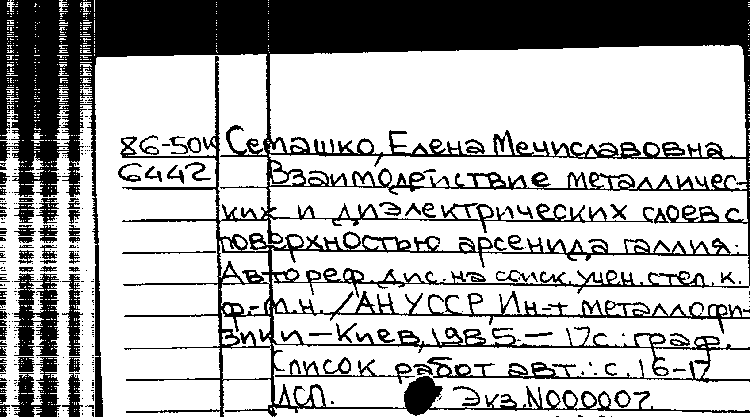 86-50к Семашко, Елена Мечиславовна.
6442 Взаимодействие металличес-
ких и диэлектрических слоев с
поверхностью арсенида галлия:
Автореф. дис. на соиск. учен. степ. к.
ф.-м.н. /АН УССР, Ин-т металлофи-
зики – Киев, 1985. – 17с.: граф.
Список работ авт.: с. 16-17
ДСП. Экз. N000007